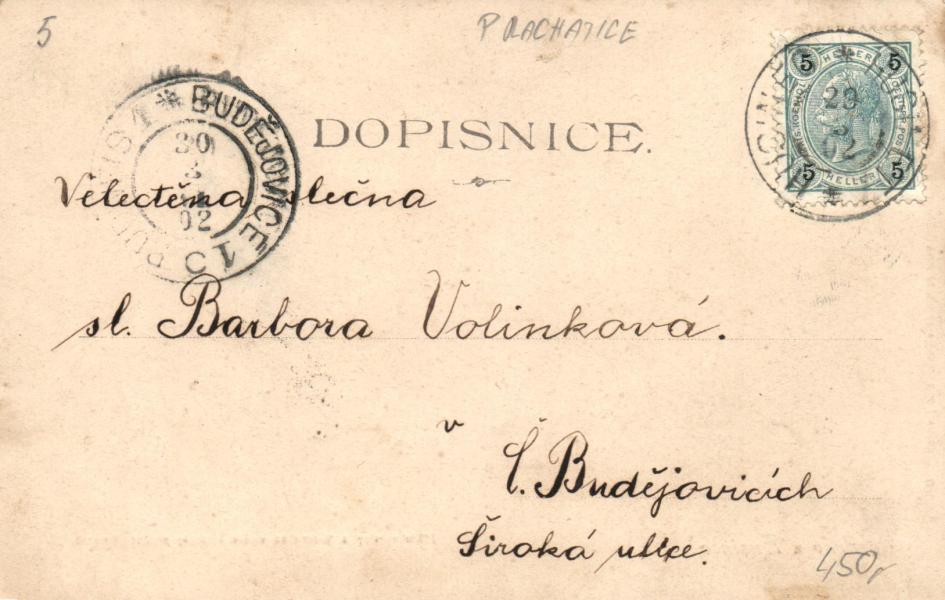 5
PRACHATICE
5 HELLER 5
5 HELLER 5
29
3
02
BUDĚJOVICE 1
30
3
02
DOPISNICE.
Velectěná slečna
sl. Barbora Volinková.
v
Č. Budějovicích
Široká ulice.
450,-